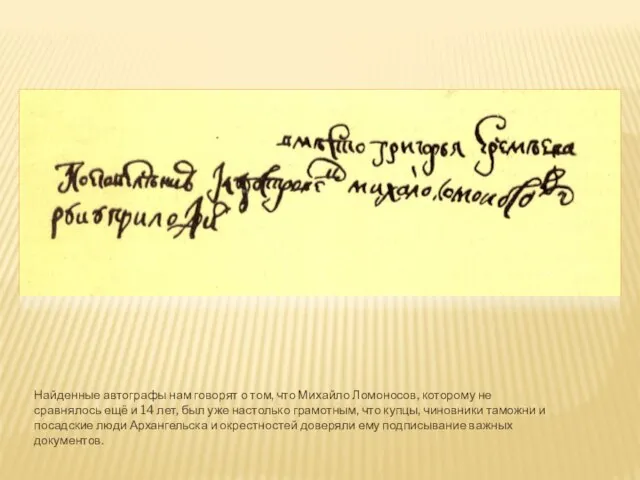 вместо григорья Еремѣева
михаило Ломоносов
руку приложил
Найденные автографы нам говорят о том, что Михайло Ломоносов, которому не
сравнялось ещё и 14 лет, был уже настолько грамотным, что купцы, чиновники таможни и
посадские люди Архангельска и окрестностей доверяли ему подписывание важных
документов.